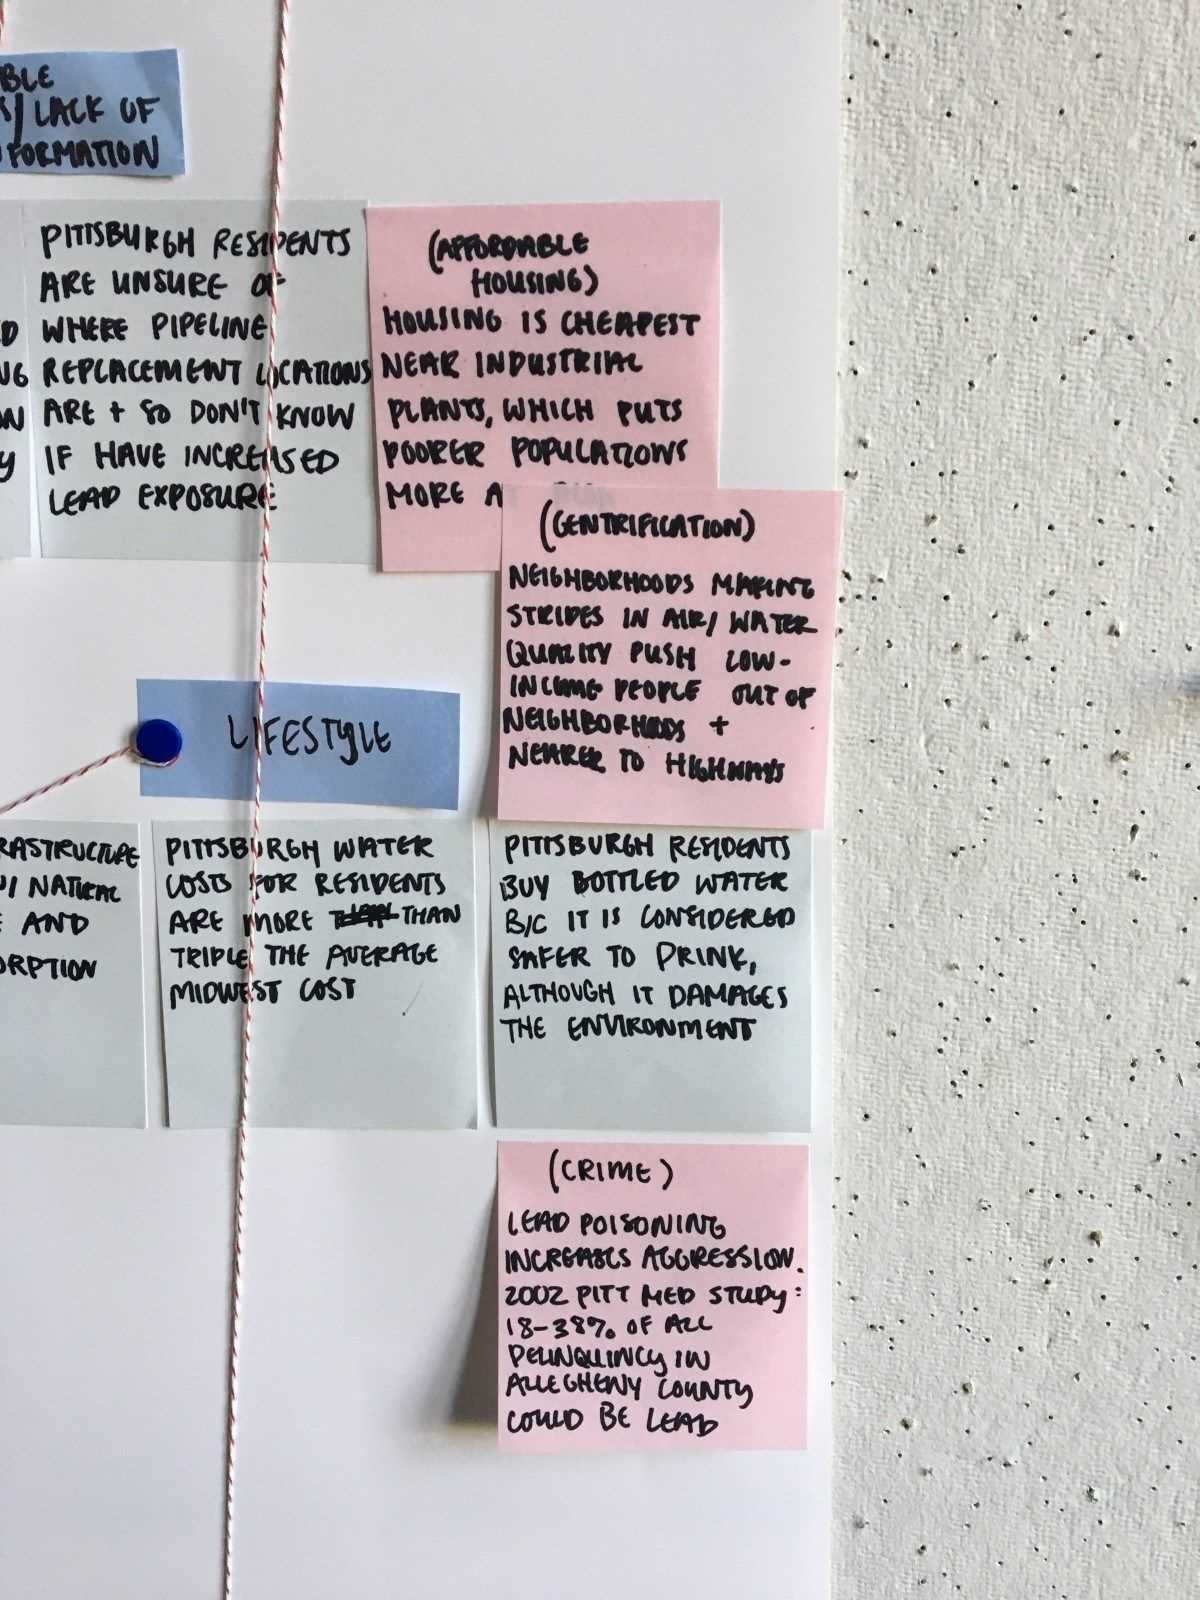 BLE
S/LACK OF
FORMATION
PITTSBURGH RESIDENTS
ARE UNSURE OF
WHERE PIPELINE
REPLACEMENT LOCATIONS
ARE + SO DON'T KNOW
IF HAVE INCREASED
LEAD EXPOSURE
(AFFORDABLE
HOUSING)
HOUSING IS CHEAPEST
NEAR INDUSTRIAL
PLANTS, WHICH PUTS
POORER POPULATIONS
MORE A
(GENTRIFICATION)
NEIGHBORHOODS MAKING
STRIDES IN AIR/ WATER
QUALITY PUSH LOW-
INCOME PEOPLE OUT OF
NEIGHBORHOODS +
NEARER TO HIGHWAYS
LIFESTYLE
RASTRUCTURE
W/ NATURAL
E AND
ORPTION
PITTSBURGH WATER
COSTS FOR RESIDENTS
ARE MORE THAN
TRIPLE THE AVERAGE
MIDWEST COST
PITTSBURGH RESIDENTS
BUY BOTTLED WATER
B/C IT IS CONSIDERED
SAFER TO DRINK,
ALTHOUGH IT DAMAGES
THE ENVIRONMENT
(CRIME)
LEAD POISONING
INCREASES AGGRESSION.
2002 PITT MED STUDY:
18-38% OF ALL
DELINQUINCY IN
ALLEGHENY COUNTY
COULD BE LEAD